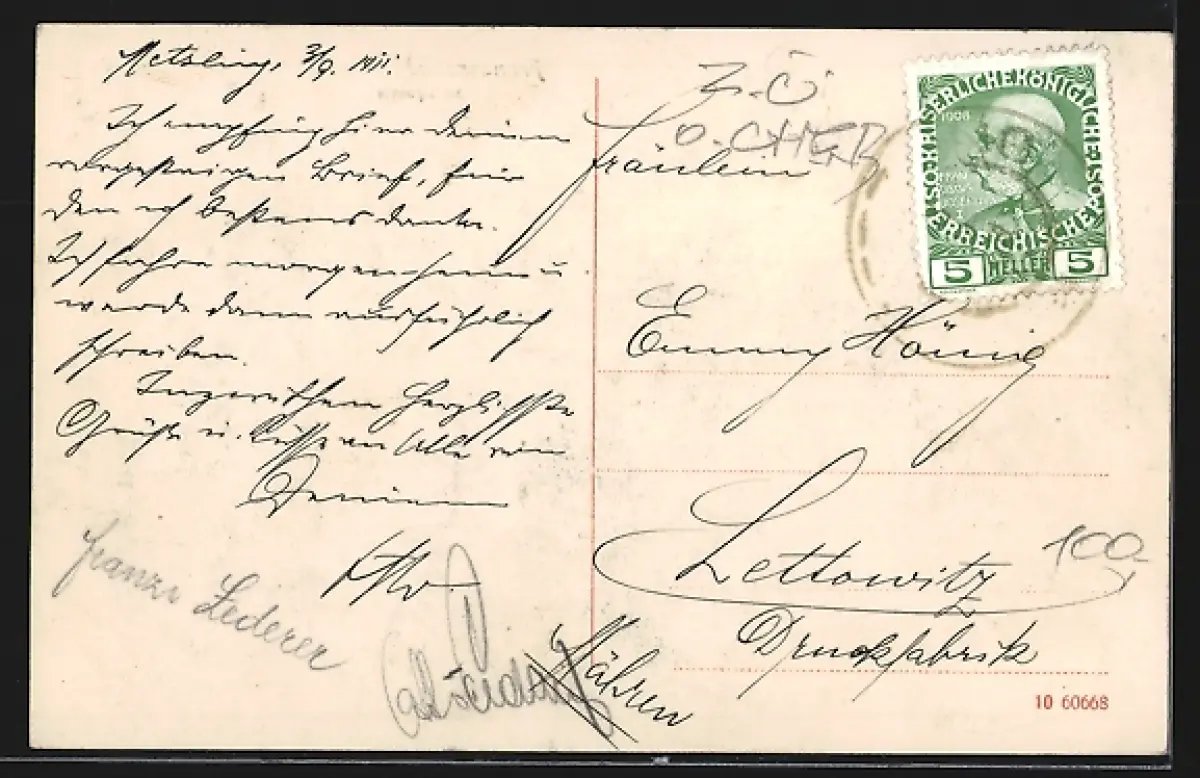 3/9.
Ich empfing hier deinen
vorgestrigen Brief, für
den ich bestens danke.
Ich fahre morgen heim u.
werde dann ausführlich
schreiben.
Inzwischen herzlichste
Grüße u. Küsse an Alle von
Deinem
Franzi Lederer
Z-Ö
Fräulein
Emmy König
Lettowitz
Druckfabrik
Mähren
100,
KAISERLICHE KÖNIGLICHE ÖSTERREICHISCHE POST
1908
5 HELLER 5
10 60668